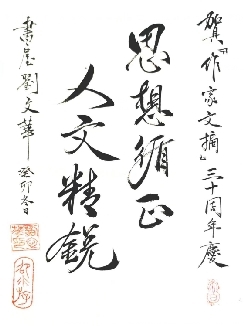 賀《作家文摘》三十周年慶
思想循正
人文精銳
書屋劉文華癸卯冬日